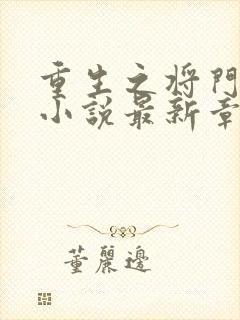 重生之将門
小說最新章
董麗邊